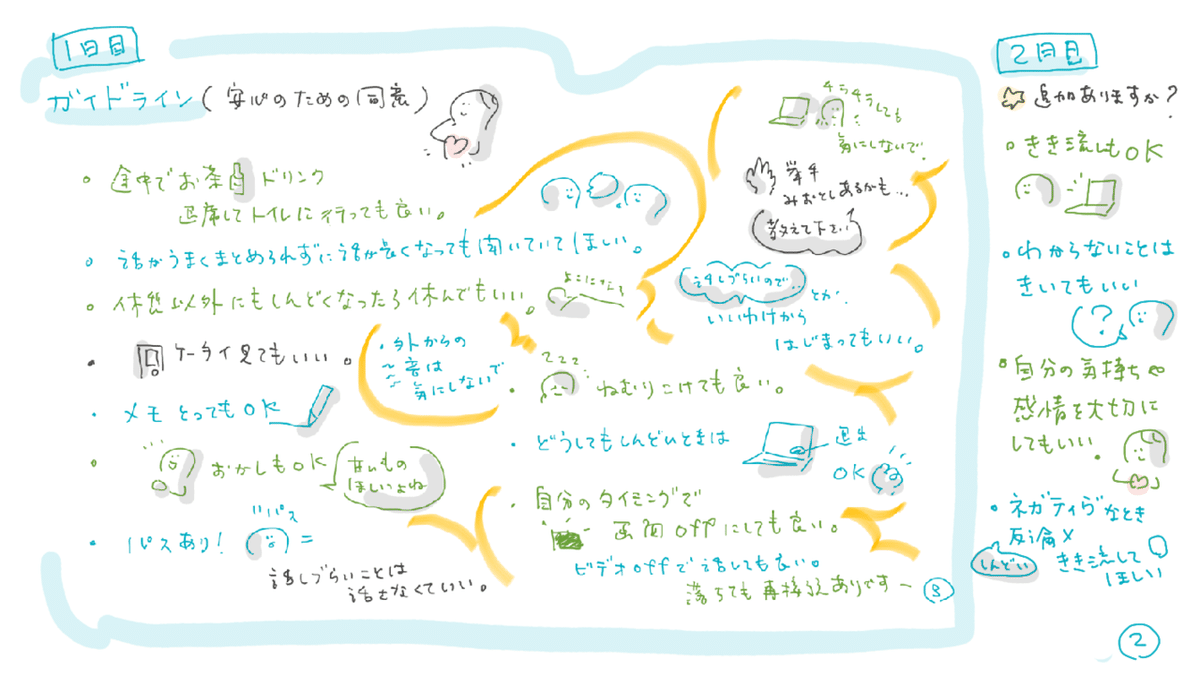 1日目
ガイドライン(安心のための同意)
途中でお茶 ドリンク
退席してトイレに行っても良い。
話がうまくまとめられずに話が長くなっても聞いていてほしい。
休憩以外にもしんどくなったら休んでもいい。
よこになる
ケータイ見てもいい。
・外からの
音は
気にしないで
メモとってもOK
おかしもOK
甘いもの
ほしいよね
パスあり!
"パス
話しづらいことは
話さなくていい。
チラチラしても
気にしないで。
挙手
みおとしあるかも…
教えて下さい
話しづらいので…
とか、
いいわけから
はじまってもいい。
zzz
ねむりこけても良い。
どうしてもしんどいときは
退出
OK
自分のタイミングで
画面offにしても良い。
ビデオoffで話しても良い。
落ちても再接続ありですー
3
2日目
追加ありますか?
きき流しもOK
わからないことは
きいてもいい
?
自分の気持ちや
感情を大切に
してもいい。
ネガティヴなとき
反論×
しんどい
きき流して
ほしい
2